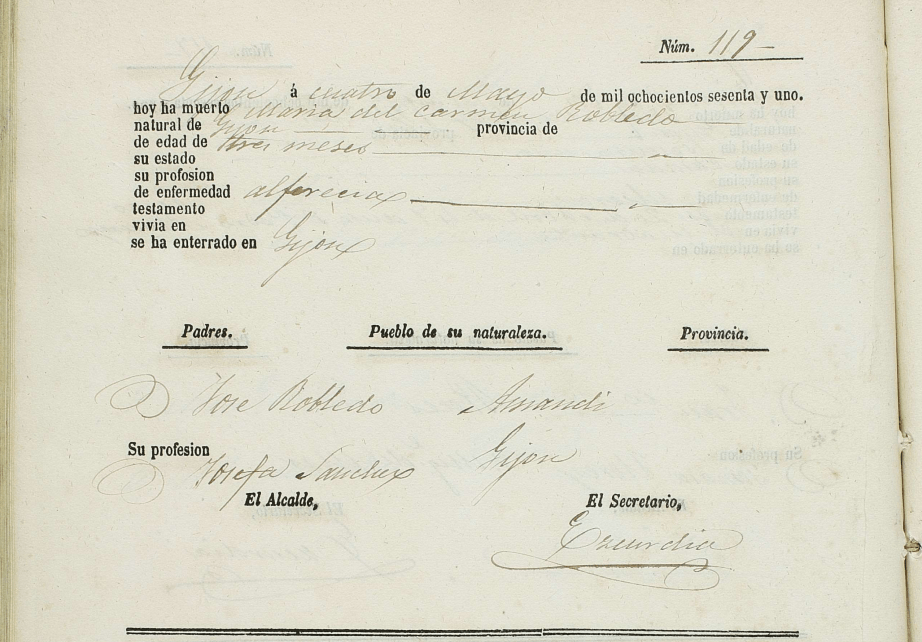 Núm. 119
Gijon á cuatro de Mayo de mil ochocientos sesenta y uno.
hoy ha muerto Maria del Carmen Robledo
natural de Gijon provincia de
de edad de tres meses
su estado
su profosion
de enfermedad alferecia
testamento
vivia en
se ha enterrado en Gijon
Padres. Pueblo de su naturaleza. Provincia.
Jose Robledo Amandi
Su profesion
Josefa Sanchez Gijon
El Alcalde, El Secretario,
Ezcurdia